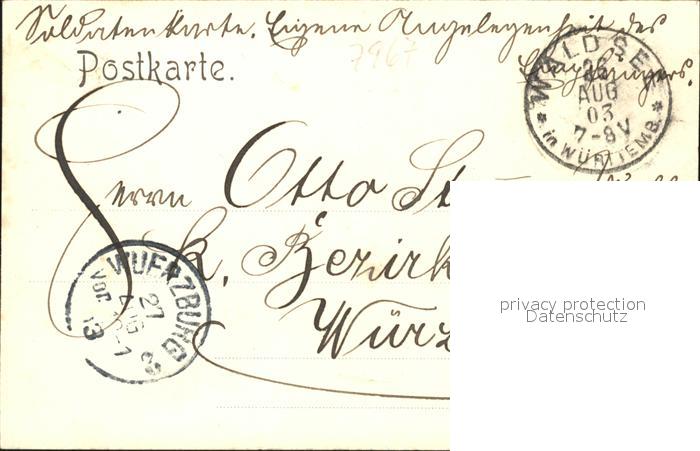 Soldatenkarte. Eigene Angelegenheit des
Empfängers.
7967
Postkarte.
WALDSEE
26
AUG
03
7-8V
* in WÜRTTEMB. *
Herrn Otto St
k. Bezirk
Würz
WUERZBURG
27
AUG
03
Vor.
privacy protection
Datenschutz